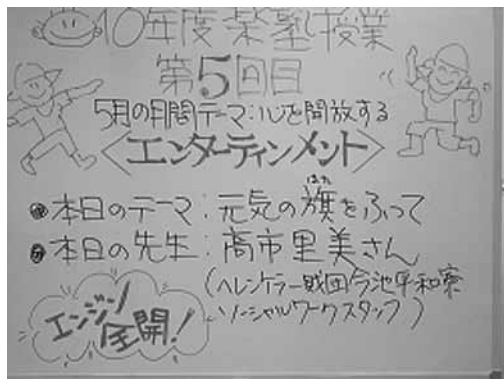 10年度楽塾授業
第5回目
5月の月間テーマ:心を開放する
<エンターティンメント>
●本日のテーマ:元気の旗をふって
はた
●本日の先生:高市里美さん
(ヘレンケラー財団今池平和寮
ソーシャルワークスタッフ)
エンジン
全開!